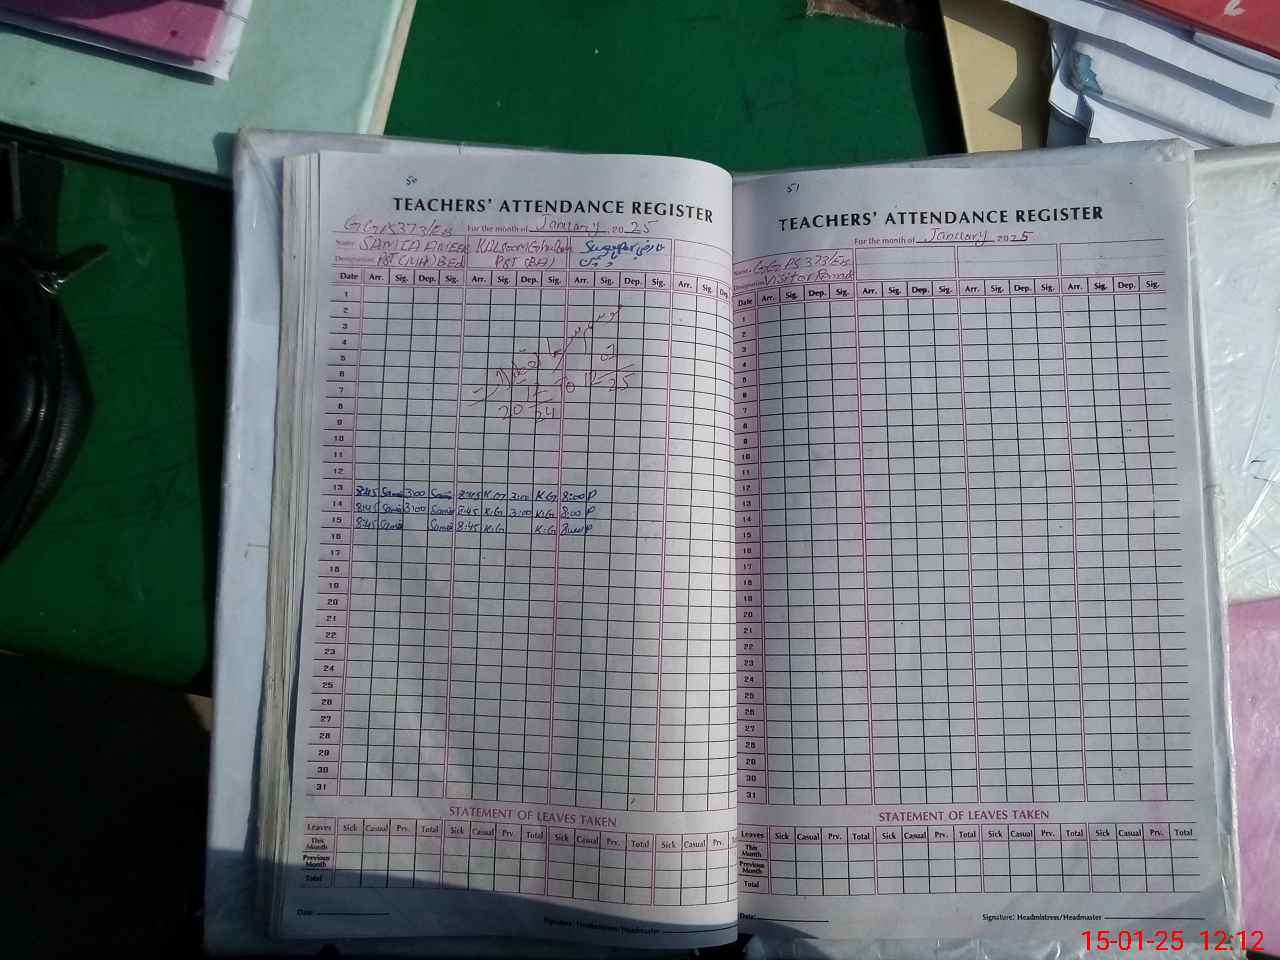 50
TEACHERS' ATTENDANCE REGISTER
GGPS 373/EB For the month of January 2025
Name SAMIA AMEER Kulsoom Ghulam
Designation PST (MA) BEd PST (BA)
Date Arr. Sig. Dep. Sig. Arr. Sig. Dep. Sig. Arr. Sig. Dep. Sig. Arr. Sig. De
1
2
3
4
5
6
7
8
9
10
11
12
13 8:45 Samia 3:00 Samia 8:45 K.G 3:00 K.G 8:00 P
14 8:45 Samia 3:00 Samia 8:45 K.G 3:00 K.G 8:00 P
15 8:45 Samia Samia 8:45 K.G K.G 8:00 P
16
17
18
19
20
21
22
23
24
25
26
27
28
29
30
31
STATEMENT OF LEAVES TAKEN
Leaves Sick Casual Prv. Total Sick Casual Prv. Total Sick Casual Prv. Total Sick Casual Prv.
This Month
Previous Month
Total
Date:
Signature: Headmistress/Headmaster
51
TEACHERS' ATTENDANCE REGISTER
For the month of January 2025
Name GGPS 373/EB
Designation Visitor
Date Arr. Sig. Dep. Sig. Arr. Sig. Dep. Sig. Arr. Sig. Dep. Sig. Arr. Sig. Dep. Sig.
1
2
3
4
5
6
7
8
9
10
11
12
13
14
15
16
17
18
19
20
21
22
23
24
25
26
27
28
29
30
31
STATEMENT OF LEAVES TAKEN
Leaves Sick Casual Prv. Total Sick Casual Prv. Total Sick Casual Prv. Total Sick Casual Prv. Total
This Month
Previous Month
Total
Date:
Signature: Headmistress/Headmaster
15-01-25 12:12